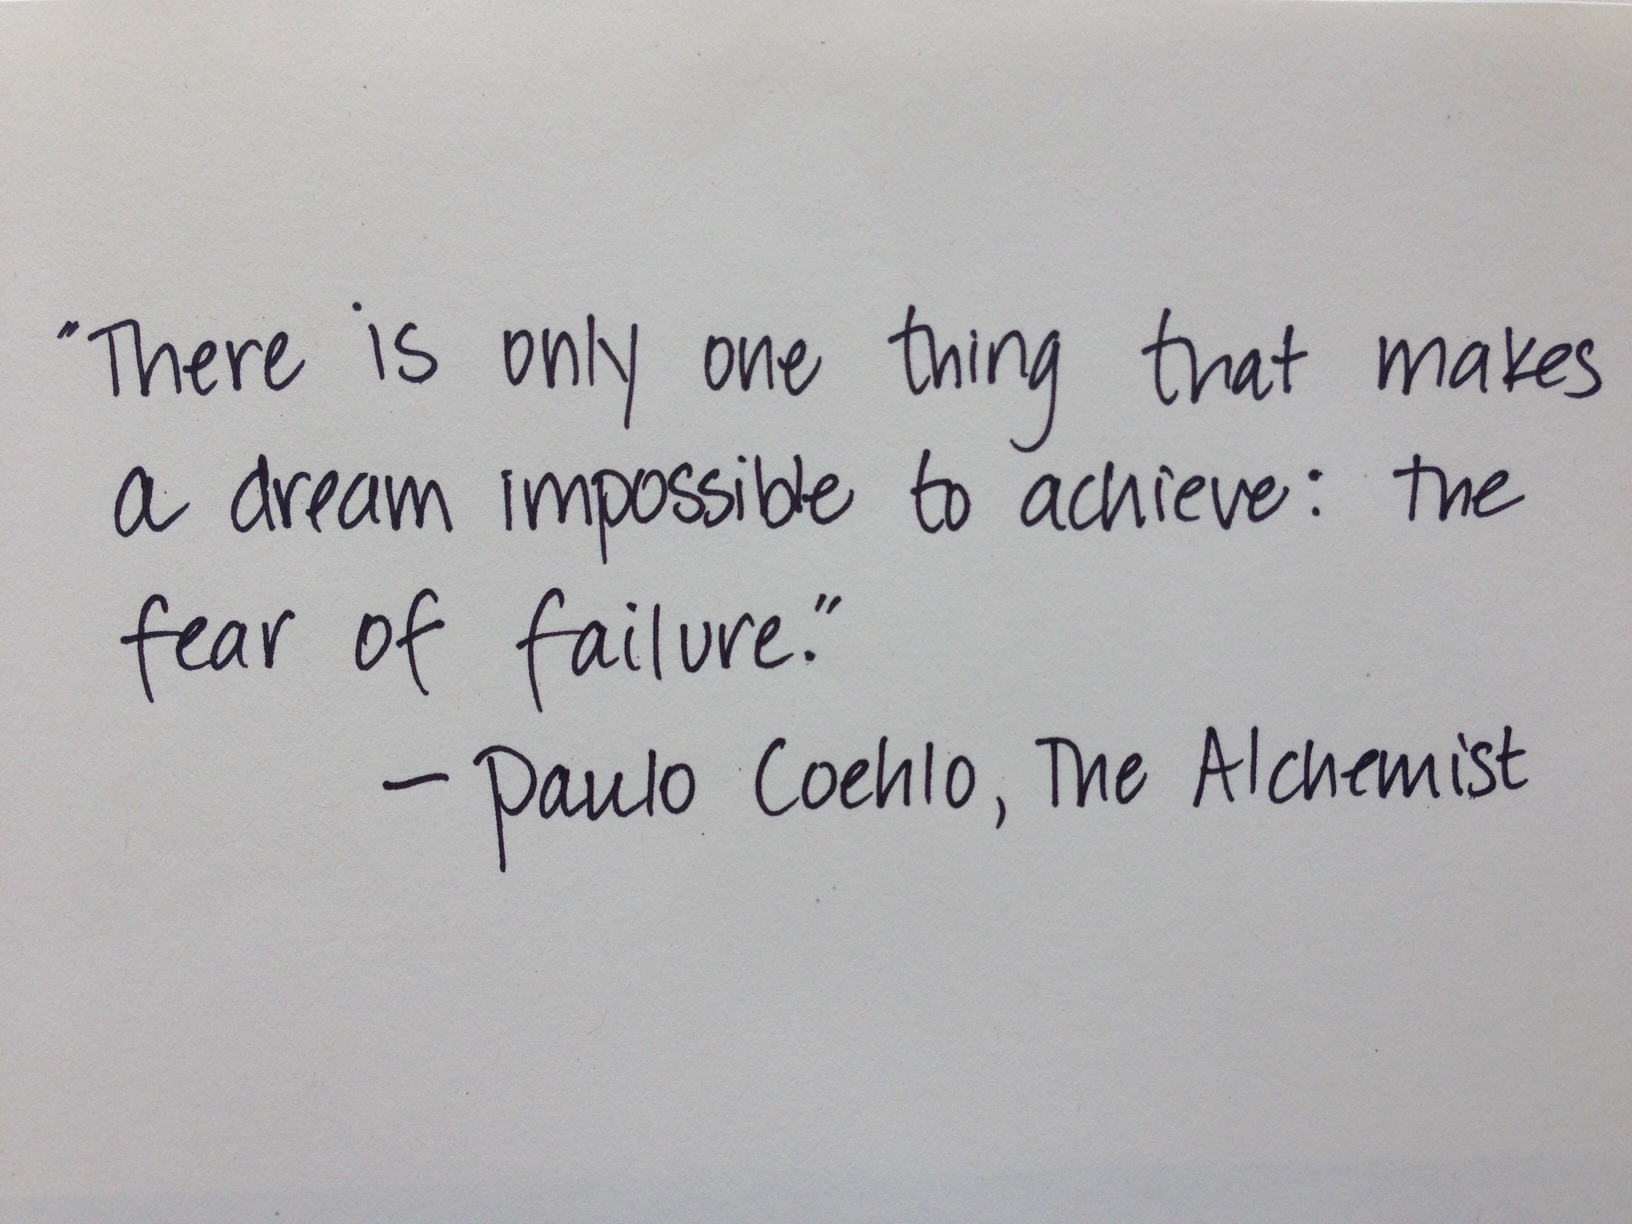 "There is only one thing that makes
a dream impossible to achieve: the
fear of failure."
– Paulo Coehlo, The Alchemist